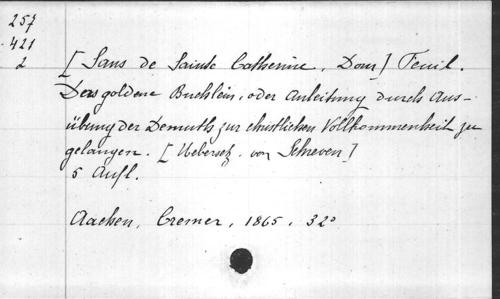 257
421
2
[Sans de Sainte Catherine, Dom] Feuil.
Das goldene Büchlein, oder Anleitung durch Aus-
übung der Demuth zur christlichen Vollkommenheit zu
gelangen. [Uebersetz. von Schreven]
5 Aufl.
Aachen, Cremer, 1865. 32°